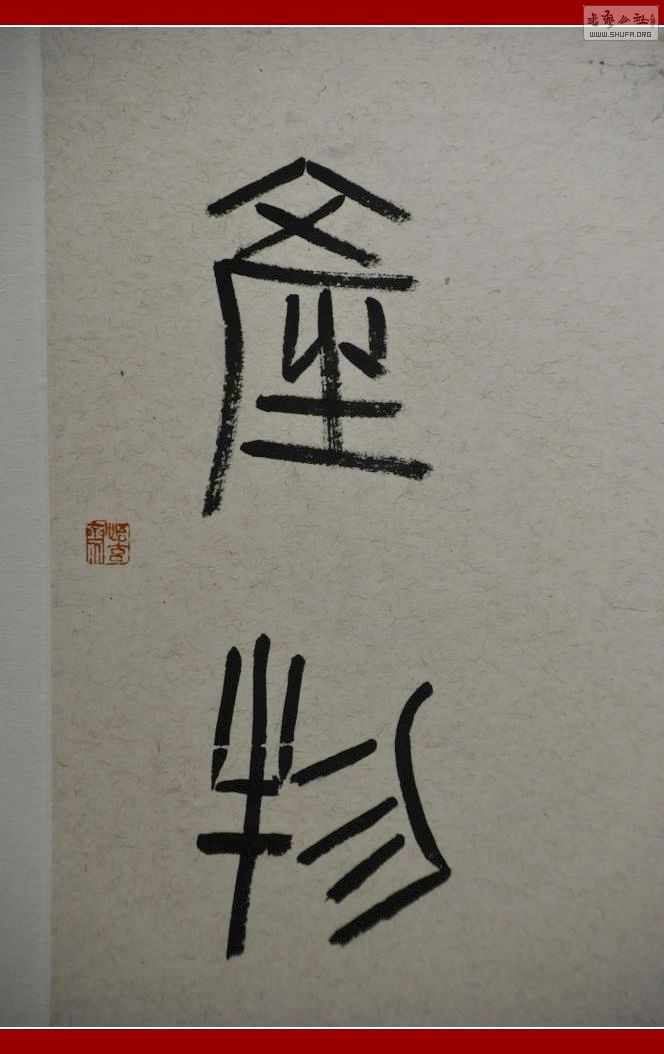 書藝公社
WWW.SHUFA.ORG
產物